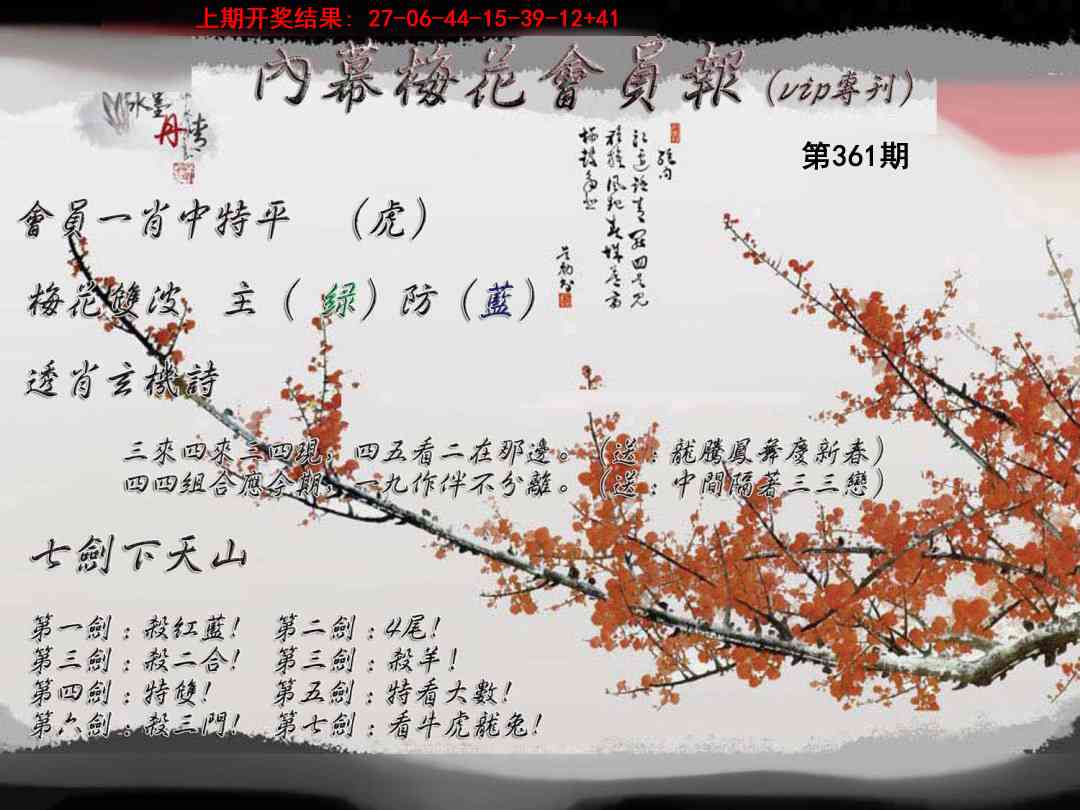 上期开奖结果: 27-06-44-15-39-12+41
內幕梅花會員報（vip專刊）
水墨
丹青
第361期
會員一肖中特平 （虎）
梅花雙波 主（绿）防（藍）
透肖玄機詩
三來四來三四現，四五看二在那邊。（送：龍騰鳳舞慶新春）
四四組合應今期，一九作伴不分離。（送：中間隔著三三戀）
七劍下天山
第一劍：殺紅藍！ 第二劍：4尾！
第三劍：殺二合！ 第三劍：殺羊！
第四劍：特雙！ 第五劍：特看大數！
第六劍：殺三門！ 第七劍：看牛虎龍兔！